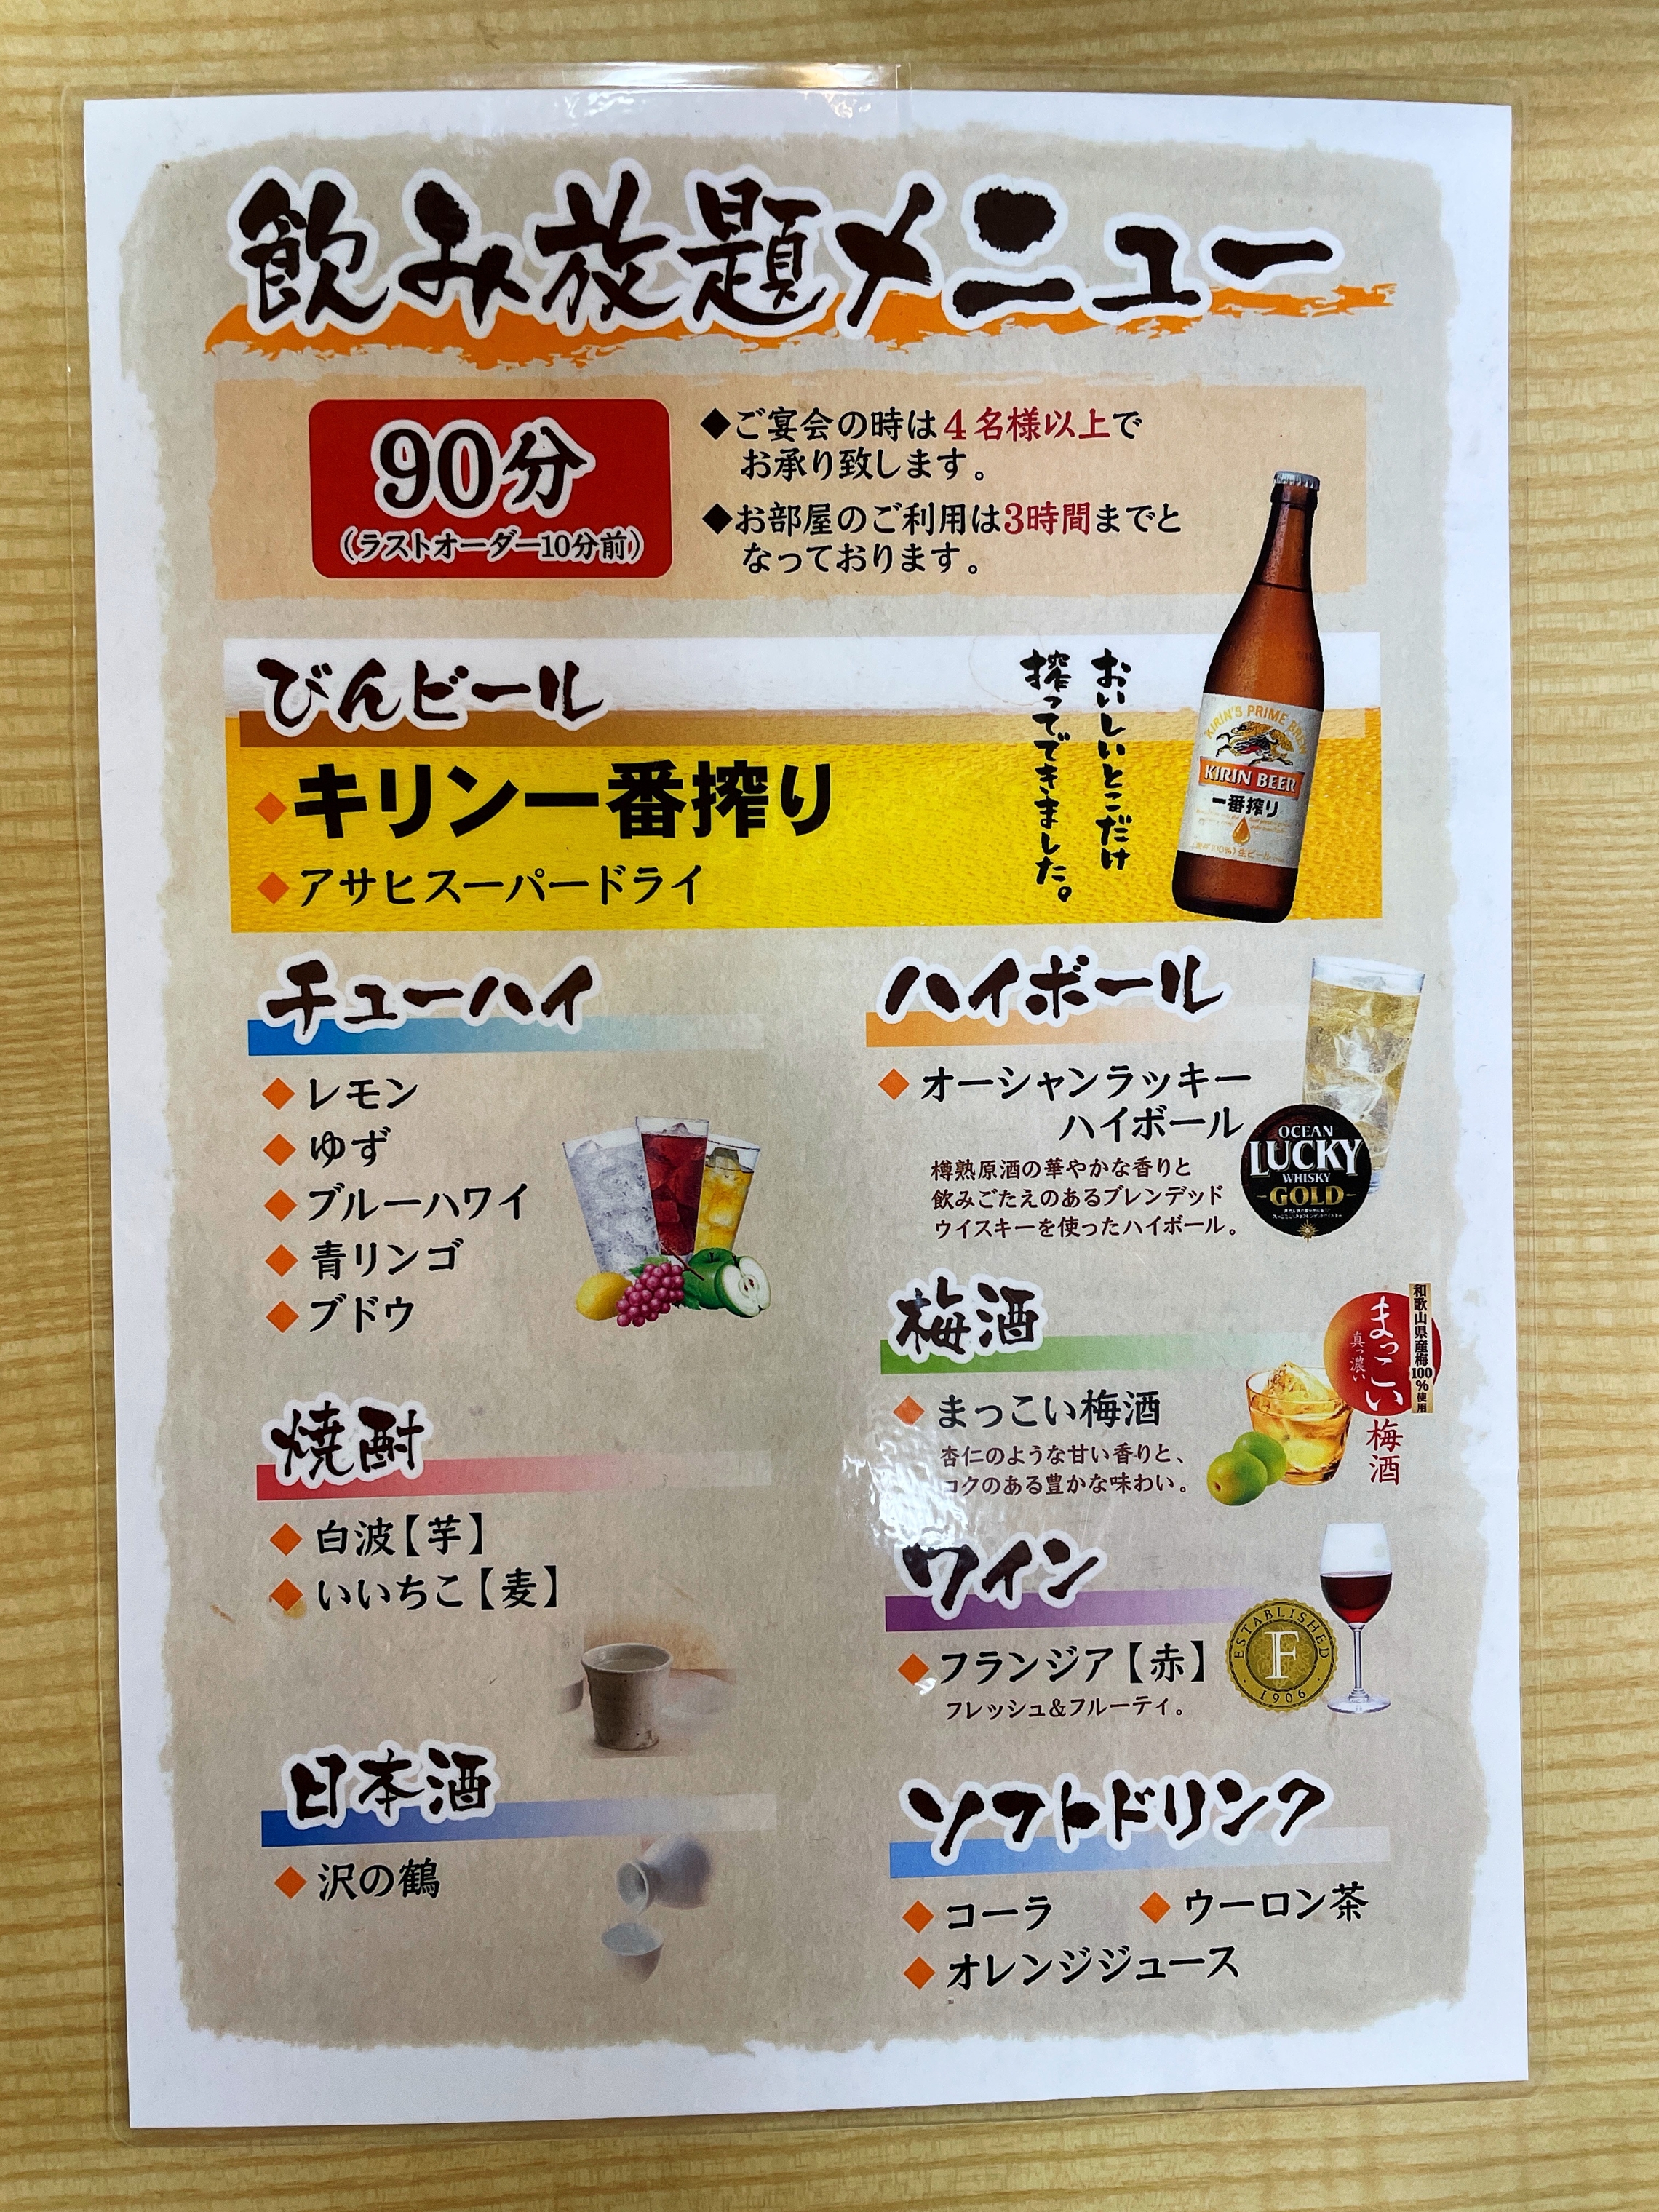 飲み放題メニュー
90分
（ラストオーダー10分前）
◆ご宴会の時は4名様以上で
お承り致します。
◆お部屋のご利用は3時間までと
なっております。
びんビール
◆キリン一番搾り
◆アサヒスーパードライ
おいしいとこだけ
搾ってできました。
KIRIN'S PRIME BREW
KIRIN BEER
一番搾り
チューハイ
◆レモン
◆ゆず
◆ブルーハワイ
◆青リンゴ
◆ブドウ
焼酎
◆白波【芋】
◆いいちこ【麦】
日本酒
◆沢の鶴
ハイボール
◆オーシャンラッキー
ハイボール
樽熟原酒の華やかな香りと
飲みごたえのあるブレンデッド
ウイスキーを使ったハイボール。
OCEAN
LUCKY
WHISKY
GOLD
梅酒
◆まっこい梅酒
杏仁のような甘い香りと、
コクのある豊かな味わい。
和歌山県産梅100%使用
まっこい
真っ濃い
梅酒
ワイン
◆フランジア【赤】
フレッシュ&フルーティ。
ESTABLISHED
F
1906
ソフトドリンク
◆コーラ ◆ウーロン茶
◆オレンジジュース